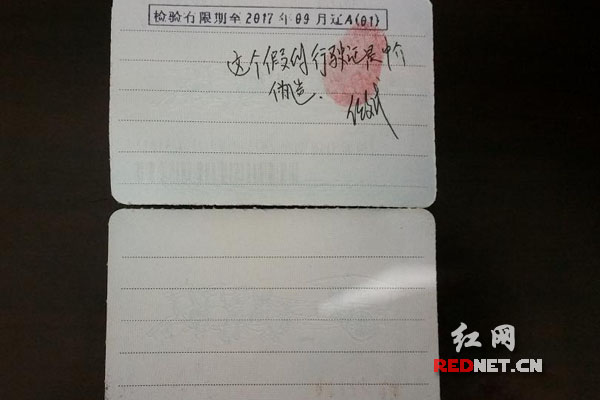 检验有限期至2017年09月辽A(01)
这个假的行驶证是中介
伪造.
红网
REDNET.CN